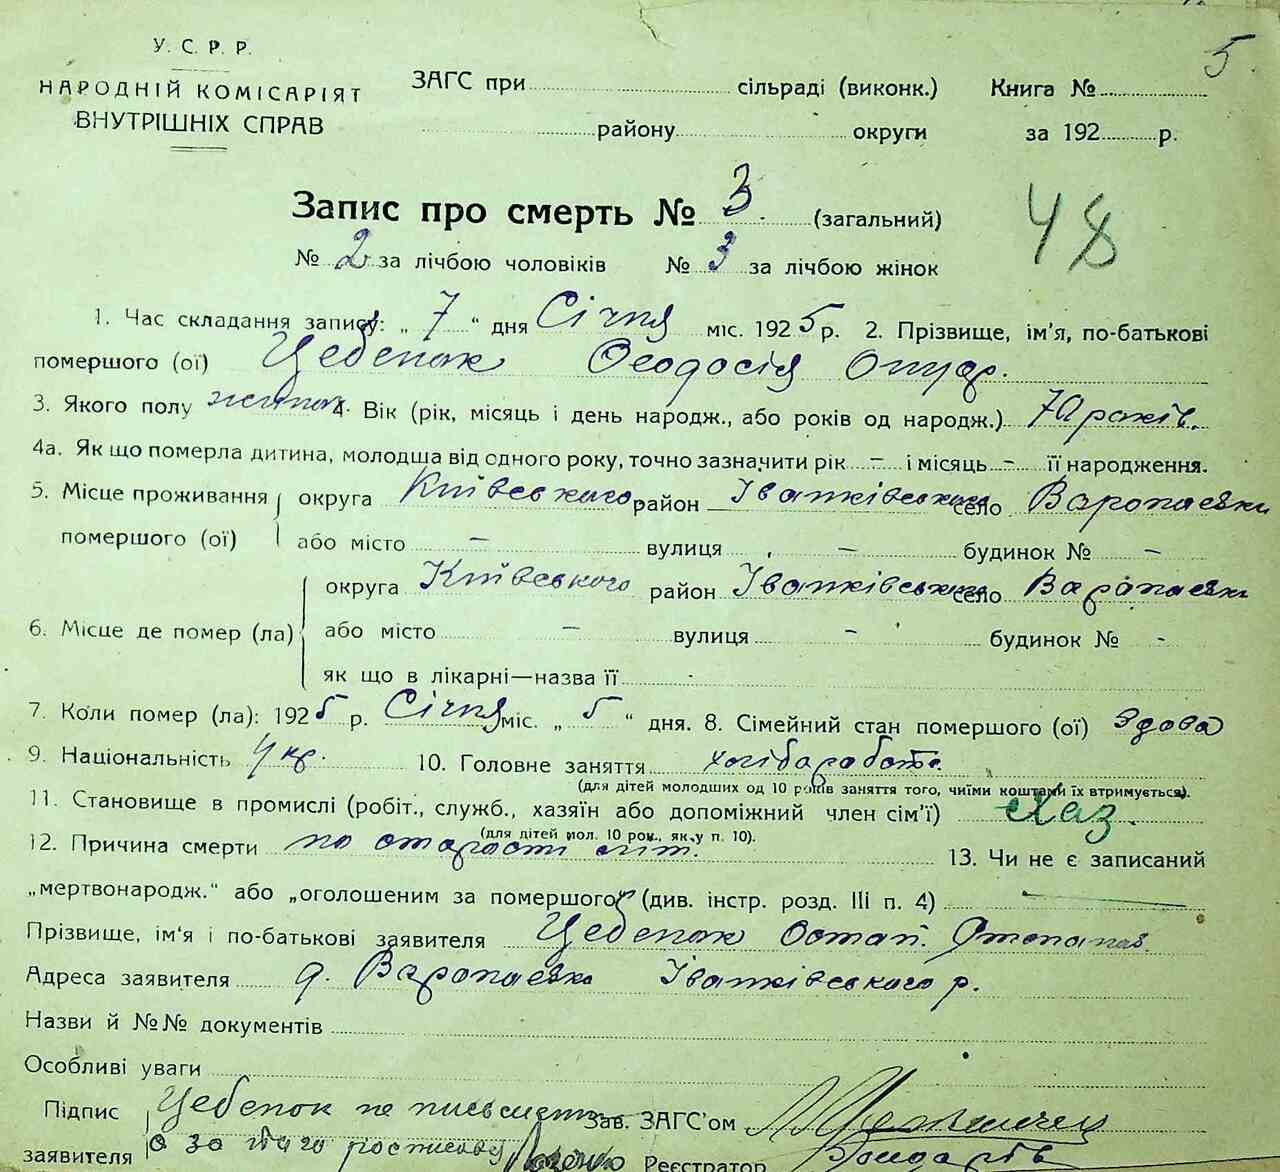 5.
У. С. Р. Р.
НАРОДНІЙ КОМІСАРІЯТ
ВНУТРІШНІХ СПРАВ
ЗАГС при сільраді (виконк.) Книга №
району округи за 192 р.
Запис про смерть № 3. (загальний)
48
№ 2 за лічбою чоловіків № 3 за лічбою жінок
1. Час складання запису: „ 7 “ дня Січня міс. 1925 р. 2. Прізвище, ім'я, по-батькові
помершого (ої) Цебенок Феодосія
3. Якого полу 4. Вік (рік, місяць і день народж., або років од народж.) 70 років.
4а. Як що померла дитина, молодша від одного року, точно зазначити рік – і місяць – її народження.
5. Місце проживання округа Київського район Іванківського село Варопаевки
помершого (ої) або місто – вулиця – будинок № –
округа Київського район Іванківського село Варапаевки
6. Місце де помер (ла) або місто – вулиця – будинок № -
як що в лікарні—назва її
7. Коли помер (ла): 1925 р. Січня міс. „ 5 “ дня. 8. Сімейний стан помершого (ої) здова
9. Національність Укр. 10. Головне заняття
(для дітей молодших од 10 років заняття того, чиїми коштами їх втримується).
11. Становище в промислі (робіт., служб., хазяїн або допоміжний член сім'ї) хаз.
(для дітей мол. 10 рок., як у п. 10).
12. Причина смерти по старости літ. 13. Чи не є записаний
„мертвонародж.“ або „оголошеним за помершого“ (див. інстр. розд. III п. 4)
Прізвище, ім'я і по-батькові заявителя Цебенок Остап.
Адреса заявителя д. Варопаевка Іванківського р.
Назви й №№ документів
Особливі уваги
Підпис Цебенок не письмен Зав. ЗАГС'ом
заявителя а за його росписався Реєстратор